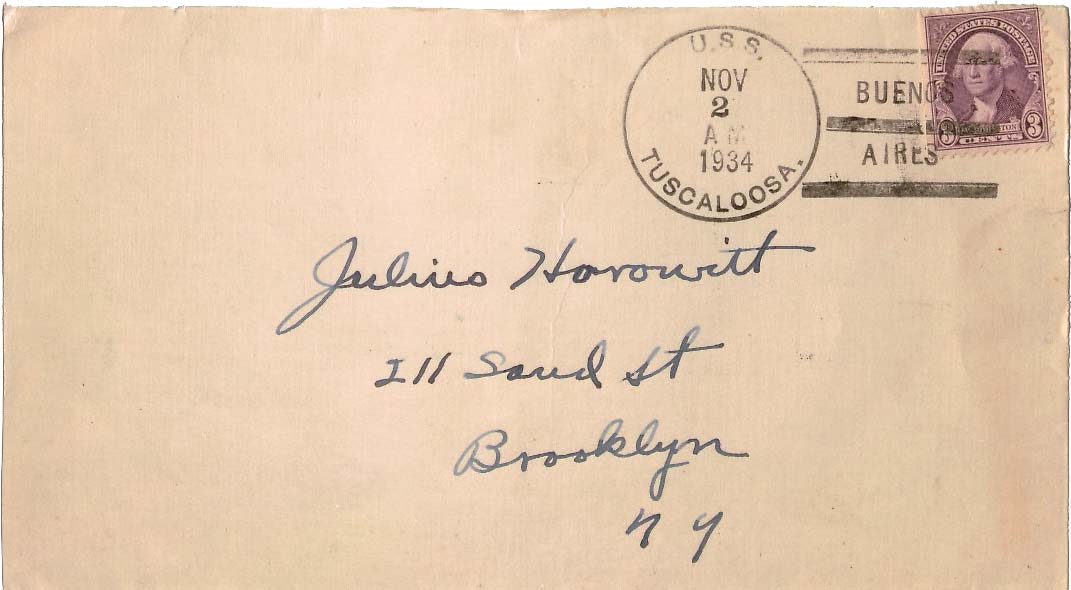 U.S.S.
NOV
2
AM
1934
TUSCALOOSA.
BUENOS
AIRES
UNITED STATES POSTAGE
3 3
CENTS
Julius Horowitt
111 Sand St
Brooklyn
N Y